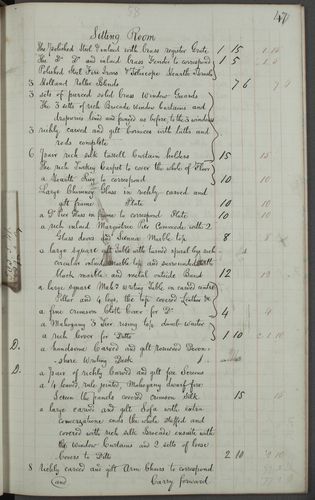 58
47
Sitting Room
The polished Steel & inlaid with brass register Grate 1 15 1 10
The Do Do and inlaid brass Fender to correspond 1 5
Polished Steel Fire Irons & Telescope Hearth Brush
Holland Roller Blinds 7 6
3 sets of pierced solid brass Window Guards
The 3 sets of rich Brocade window curtains and
draperies lined and fringed as before, to the 3 windows
3 richly carved and gilt cornices with laths and
rods complete
6 pair rich silk tassell Curtain holders 15 15
The rich Turkey Carpet to cover the whole of Floor
a Hearth Rug to correspond 10 10
Large Chimney Glass in richly carved and
gilt frame Plate 10 10
a Do Pier Glass in frame to correspond Plate 10 10
a rich inlaid Marqueterie Pier Commode with 2
Glass doors and Sienna Marble top 8
a large square gilt Table with turned legs
circular inlaid marble top and surrounded with
black marble and metal outside Bead 12 12
a large square Mahy writing Table on carved centre
Pillar and 4 legs, the top covered Leather &c
a fine crimson Cloth Cover for Do 4 4
a Mahogany 3 tier rising top dumb waiter
a rich cover for Ditto 1 10 2 10
D. a handsome Carved and gilt rosewood Devon-
shire Writing Desk
D. a pair of richly Carved and gilt fire Screens
a 4 leaved rule jointed, Mahogany dwarf fire
Screen the panels covered crimson Silk 15 15
a large carved and gilt Sofa with extra
conversazione ends the whole stuffed and
covered with rich silk Brocade ensuite with
the Window Curtains and 2 sets of loose
Covers to Ditto 2 10 2 10
8 richly carved and gilt Arm Chairs to correspond
(and Carry forward